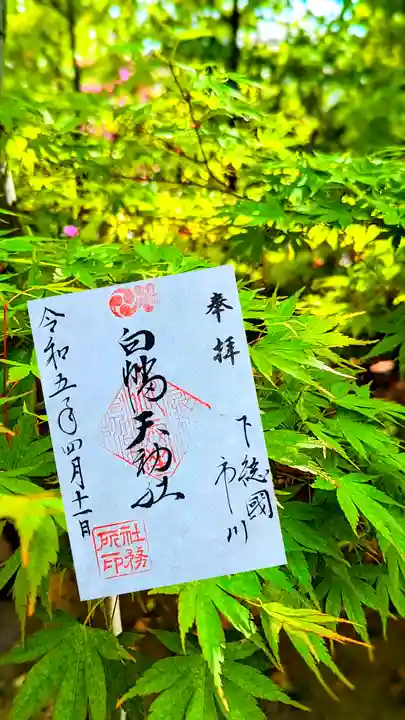 奉拝
下総國
市川
白幡天神社
社務
所印
令和五年四月十一日